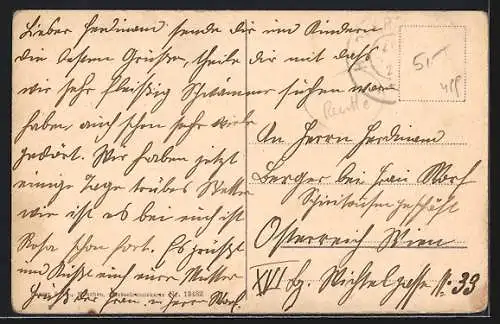 Lieber Ferdinand sende dir im Kindern
die besten Grüßen, theile dir mit daß
wir sehr fleißig Schwämme suchen
haben, auch schon sehr viele
gedört. Wir haben jetzt
einige Tage trübes Wetter
wie ist es bei euch ist
Rosa schon fort. Es grüßt
und Küßt euch eure Mutter
Grüße der Frau, u. Herrn Worf.
An Herrn Ferdinand
Berger bei Frau Worf
Österreich Wien
XVI Bg. Wichtelgasse No. 33
No. 13482
51-